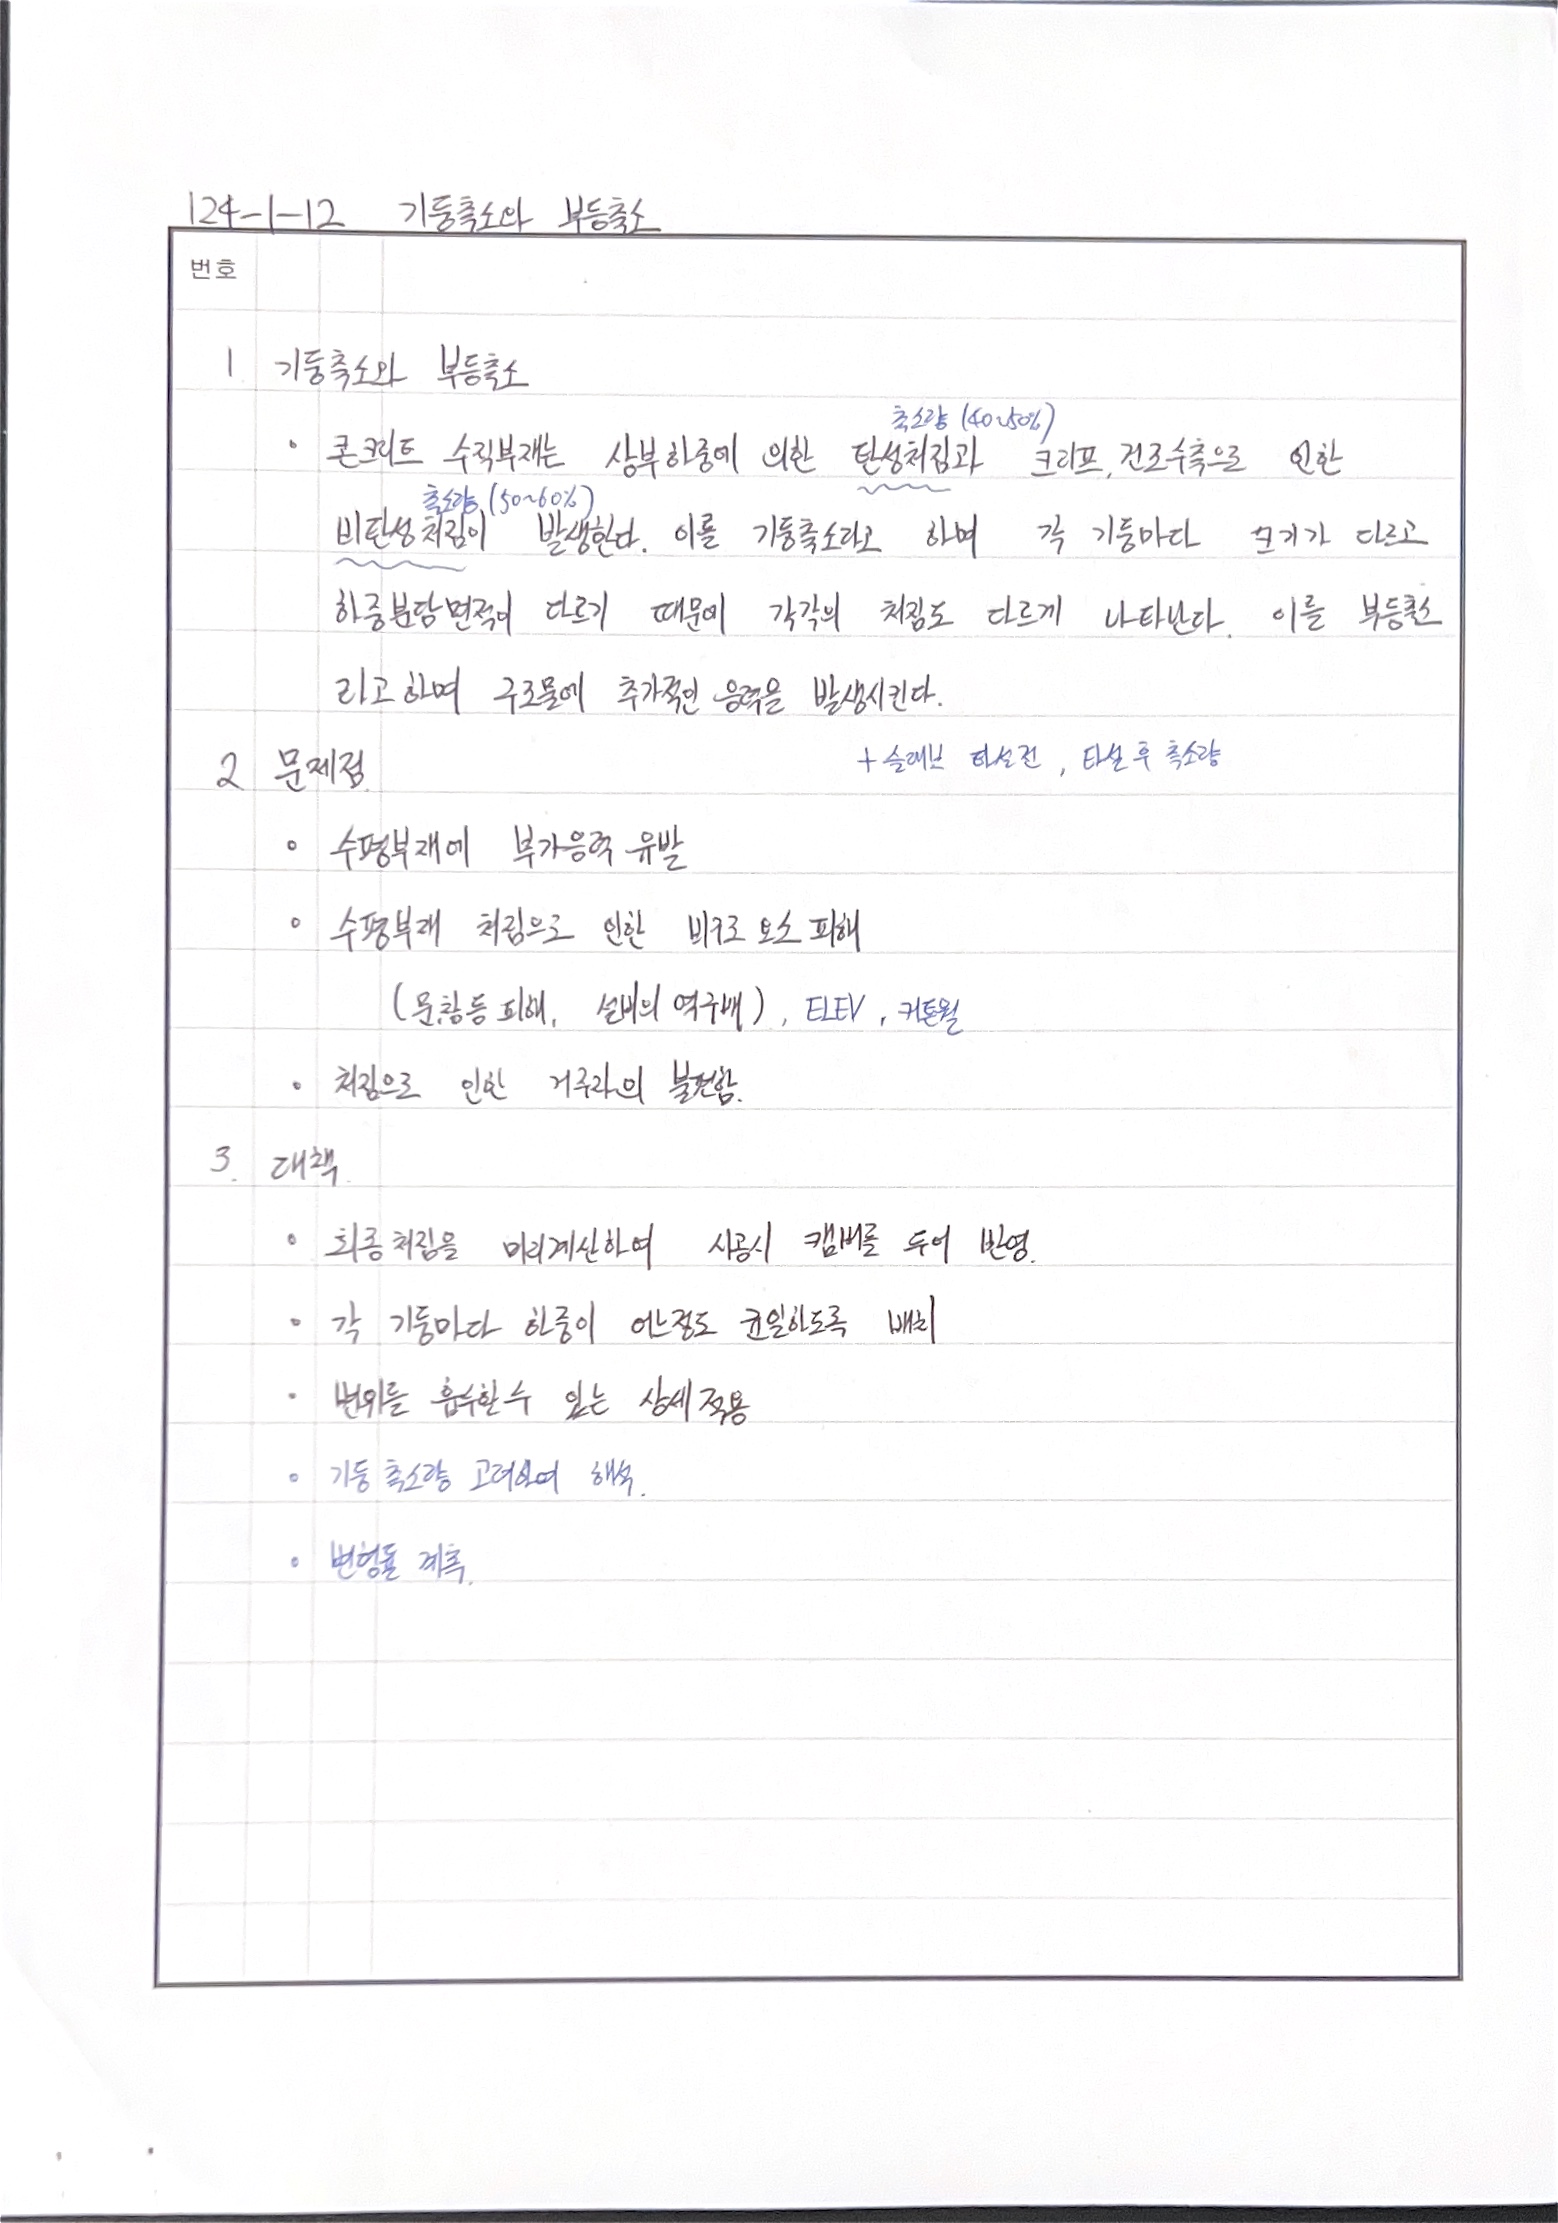 124-1-12 기둥축소와 부등축소
번호
1 기둥축소와 부등축소
축소량 (40~50%)
• 콘크리트 수직부재는 상부하중에 의한 탄성처짐과 크리프, 건조수축으로 인한
축소량 (50~60%)
비탄성처짐이 발생한다. 이를 기둥축소라고 하며 각 기둥마다 크기가 다르고
하중분담면적이 다르기 때문에 각각의 처짐도 다르게 나타난다. 이를 부등축소
라고하며 구조물에 추가적인 응력을 발생시킨다.
+ 슬래브 타설전, 타설후 축소량
2 문제점
• 수평부재에 부가응력 유발
• 수평부재 처짐으로 인한 비구조요소 피해
(문,창등 피해, 설비의 역구배), ELEV, 커튼월
• 처짐으로 인한 거주자의 불편함.
3. 대책.
• 최종처짐을 미리계산하여 시공시 캠버를 두어 반영.
• 각 기둥마다 하중이 어느정도 균일하도록 배치
• 변위를 흡수할수 있는 상세적용
• 기둥축소량 고려하여 해석.
• 변형률 계측.